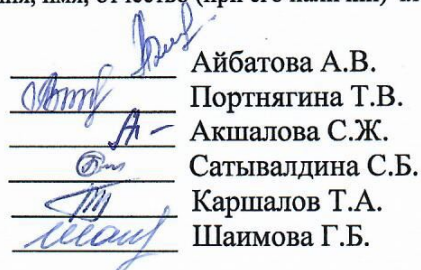 имя, отчество (при его наличии)
Айбатова А.В.
Портнягина Т.В.
Акшалова С.Ж.
Сатывалдина С.Б.
Каршалов Т.А.
Шаимова Г.Б.